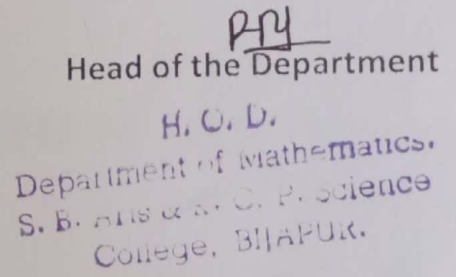 Head of the Department
H. O. D.
Department of Mathematics.
S. B. Arts & K. C. P. Science
College, BIJAPUR.